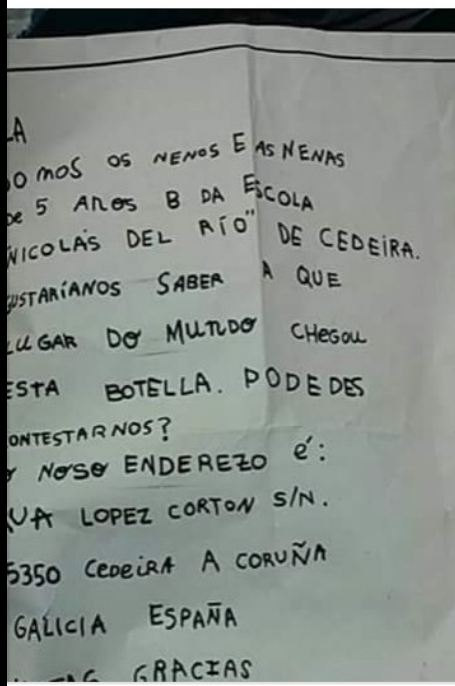 LA
SOMOS OS NENOS E AS NENAS
DE 5 ANOS B DA ESCOLA
NICOLÁS DEL RÍO" DE CEDEIRA.
USTARÍANOS SABER A QUE
LUGAR DO MUNDO CHEGOU
ESTA BOTELLA. PODEDES
ONTESTARNOS?
O NOSO ENDEREZO é:
UA LOPEZ CORTON S/N.
5350 CEDEIRA A CORUÑA
GALICIA ESPAÑA
GRACIAS